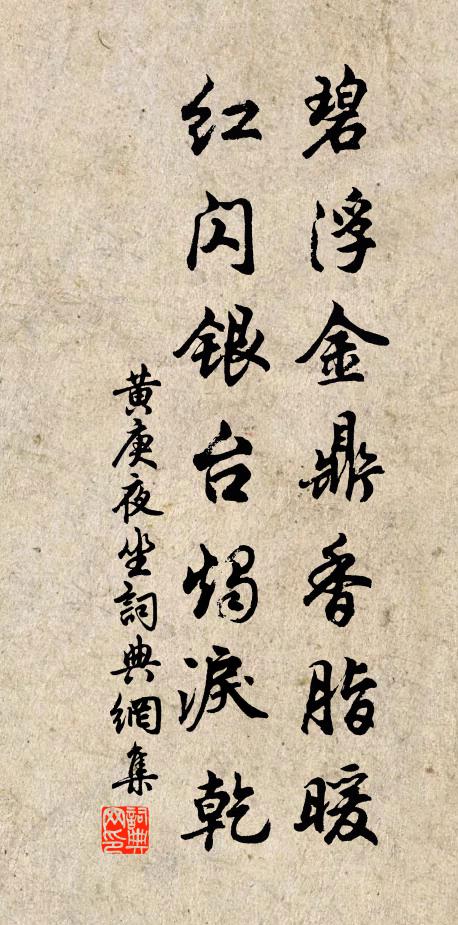 碧浮金鼎香脂暖
红闪银台烛淚乾
黄庚夜坐詞典網集
詞典网印